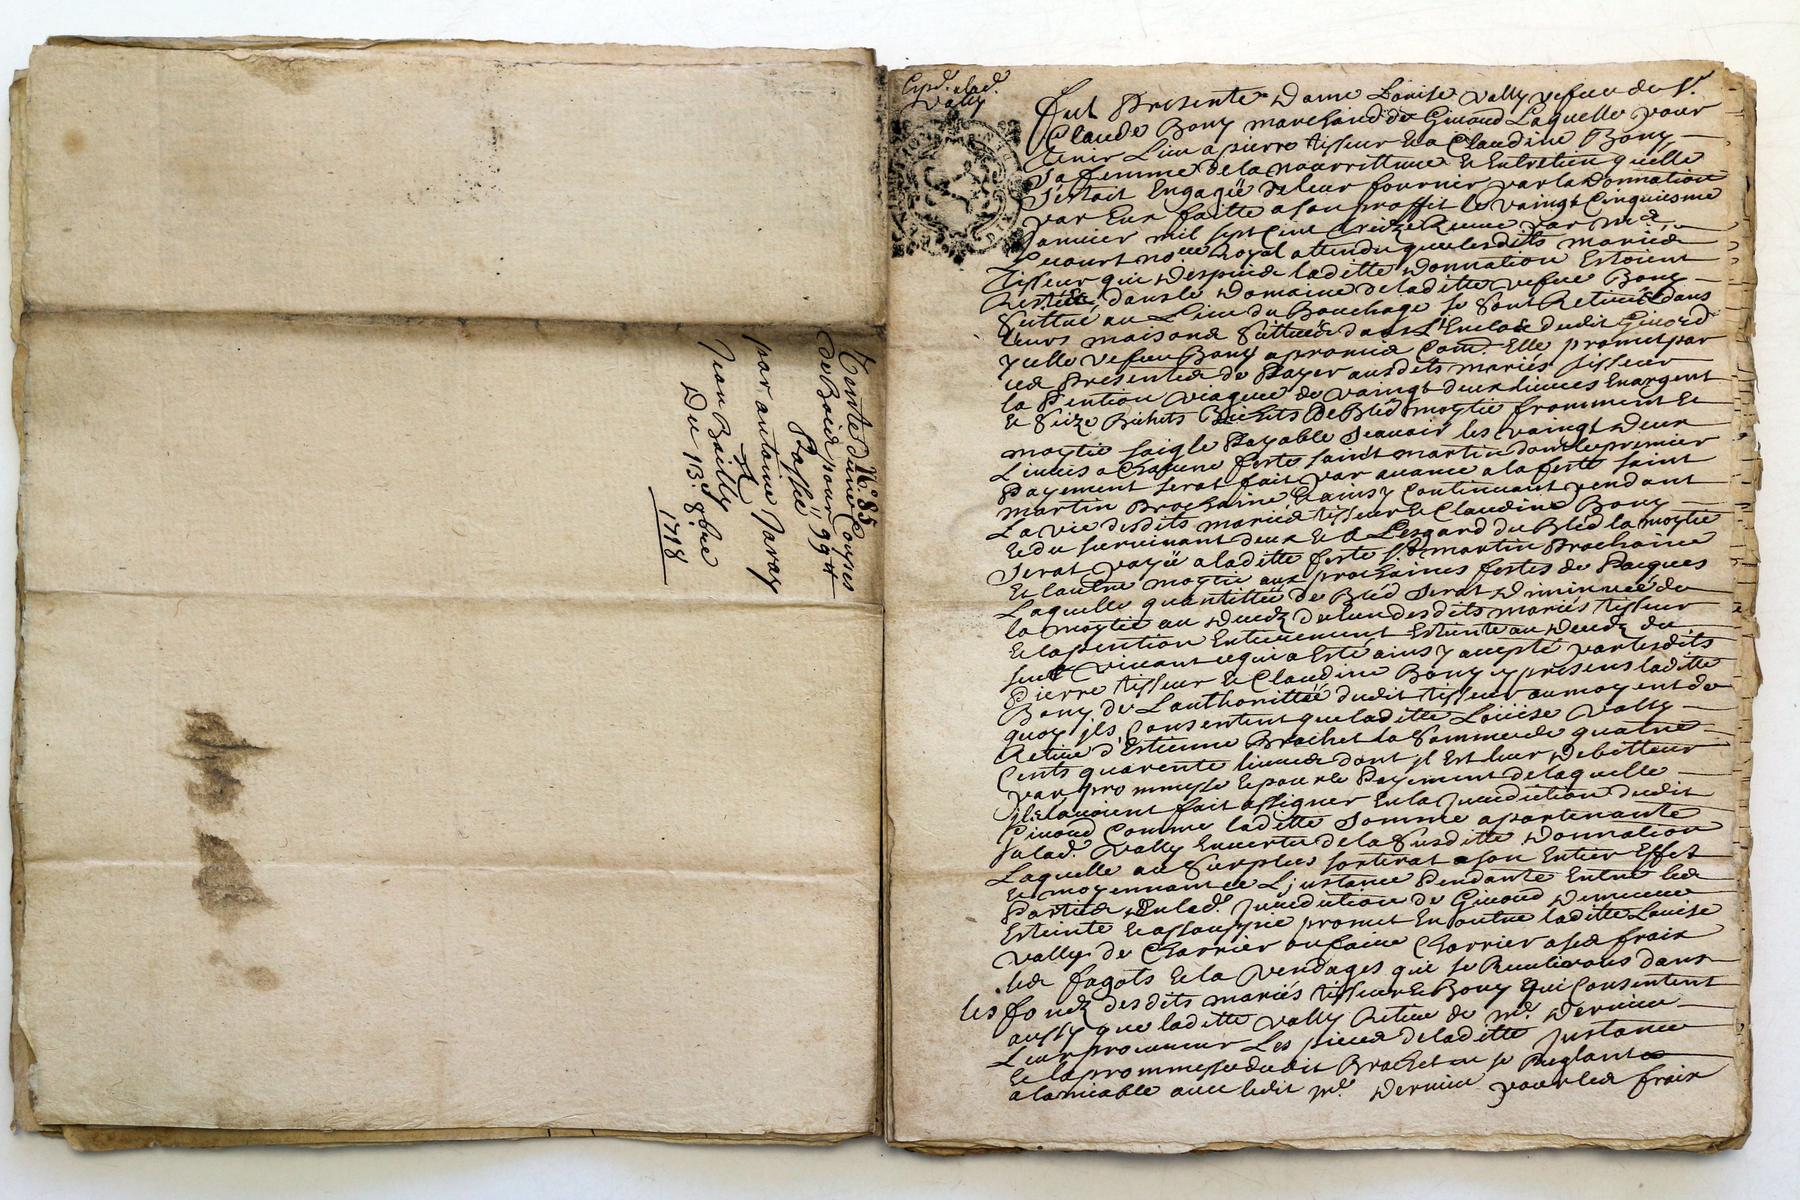 N.° 85
Vente d'une Couppes
de Bois pour 99 tt
Passée
par antoine Jaray
A
Jean Bailly
Du 13.e 8bre
1718
Exp.d a lad.
Vally
Fut Presente Dame Louise Vally vefue du S.r
Claude Bony marchand de Giuord Laquelle pour
tenir Lieu a pierre tisseur Et a Claudine Bony
Sa femme de la nourritture Et Entretien quelle
S'estoit Engagée de leur fournir par la Donnation
par Eux faitte a son proffit le Vaingt Cinquiesme
Januier mil sept Cent par M.e
Royal attendu que lesdits mariés
Tisseur qui Despuis laditte Donnation Estoient
dans le Domaine de laditte vefue Bony
Scittué au Lieu du Bouchage se sont Retirés dans
leurs maisons Scittuées dans l'Enclos dudit Giuord
ycelle vefue Bony a promis Com.e Elle promet par
ces Presentes de Payer ausdits mariés tisseur
la Pention Viagere de vaingt deux liures En argent
Et Seize Bichets Bichets De Bléd moytié fromment Et
moytié saigle Payable Scauoir les vaingt Deux
Liures a Chacune feste saint martin dont le premier
Payement serat fait par auance a la feste saint
martin Prochaine Et ainsy Continuant pendant
La vie desdits mariés tisseur Et Claudine Bony
Et du suruiuant deux Et a Lesgard du Bléd la moytié
Serat payé a laditte feste S.t martin Prochaine
Et l'autre moytié aux prochaines festes de Pacques
Laquelle quantittée de Bléd Serat Diminuée de
la moytié au Decedz de l'un desdits mariés tisseur
Et la pention Entierement Esteinte au Decedz du
viuant ce qui a Esté ainsy accepté par lesdits
Pierre tisseur Et Claudine Bony cy presens laditte
Bony de L'authorittée dudit tisseur au moyent de
quoy jls Consentent que laditte Loüise Vally
Retire d'Estienne Brochet la Somme de quatre
Cents quarente liures dont jl Est leur Debitteur
par prommesse Et pour le Payement de laquelle
jls l'auoient fait assigner En la Jurediction dudit
Giuord Comme laditte Somme apartenante
a lad.e Vally En vertu de la Susditte Donnation
Laquelle au Surplus sortirat a son Entier Effet
Et moyennant ce L'justance Pendante Entre les
Parties En lad.e Jurediction de Giuord Demeure
Esteinte Et assoupie promet En outre laditte Louise
Vally de Charrier ou faire Charrier a ses frais
les fagots Et la Vendages qui se Receuillirons dans
les fondz desdits mariés tisseur Et Bony Qui Consentent
aussy que laditte Vally Retire de M.e Dernieu
Leur procureur Les pieces de laditte Justance
Et la prommesse dudit Brochet en se Reglant
a lamiable auec ledit M.e Dernieu pour les frais